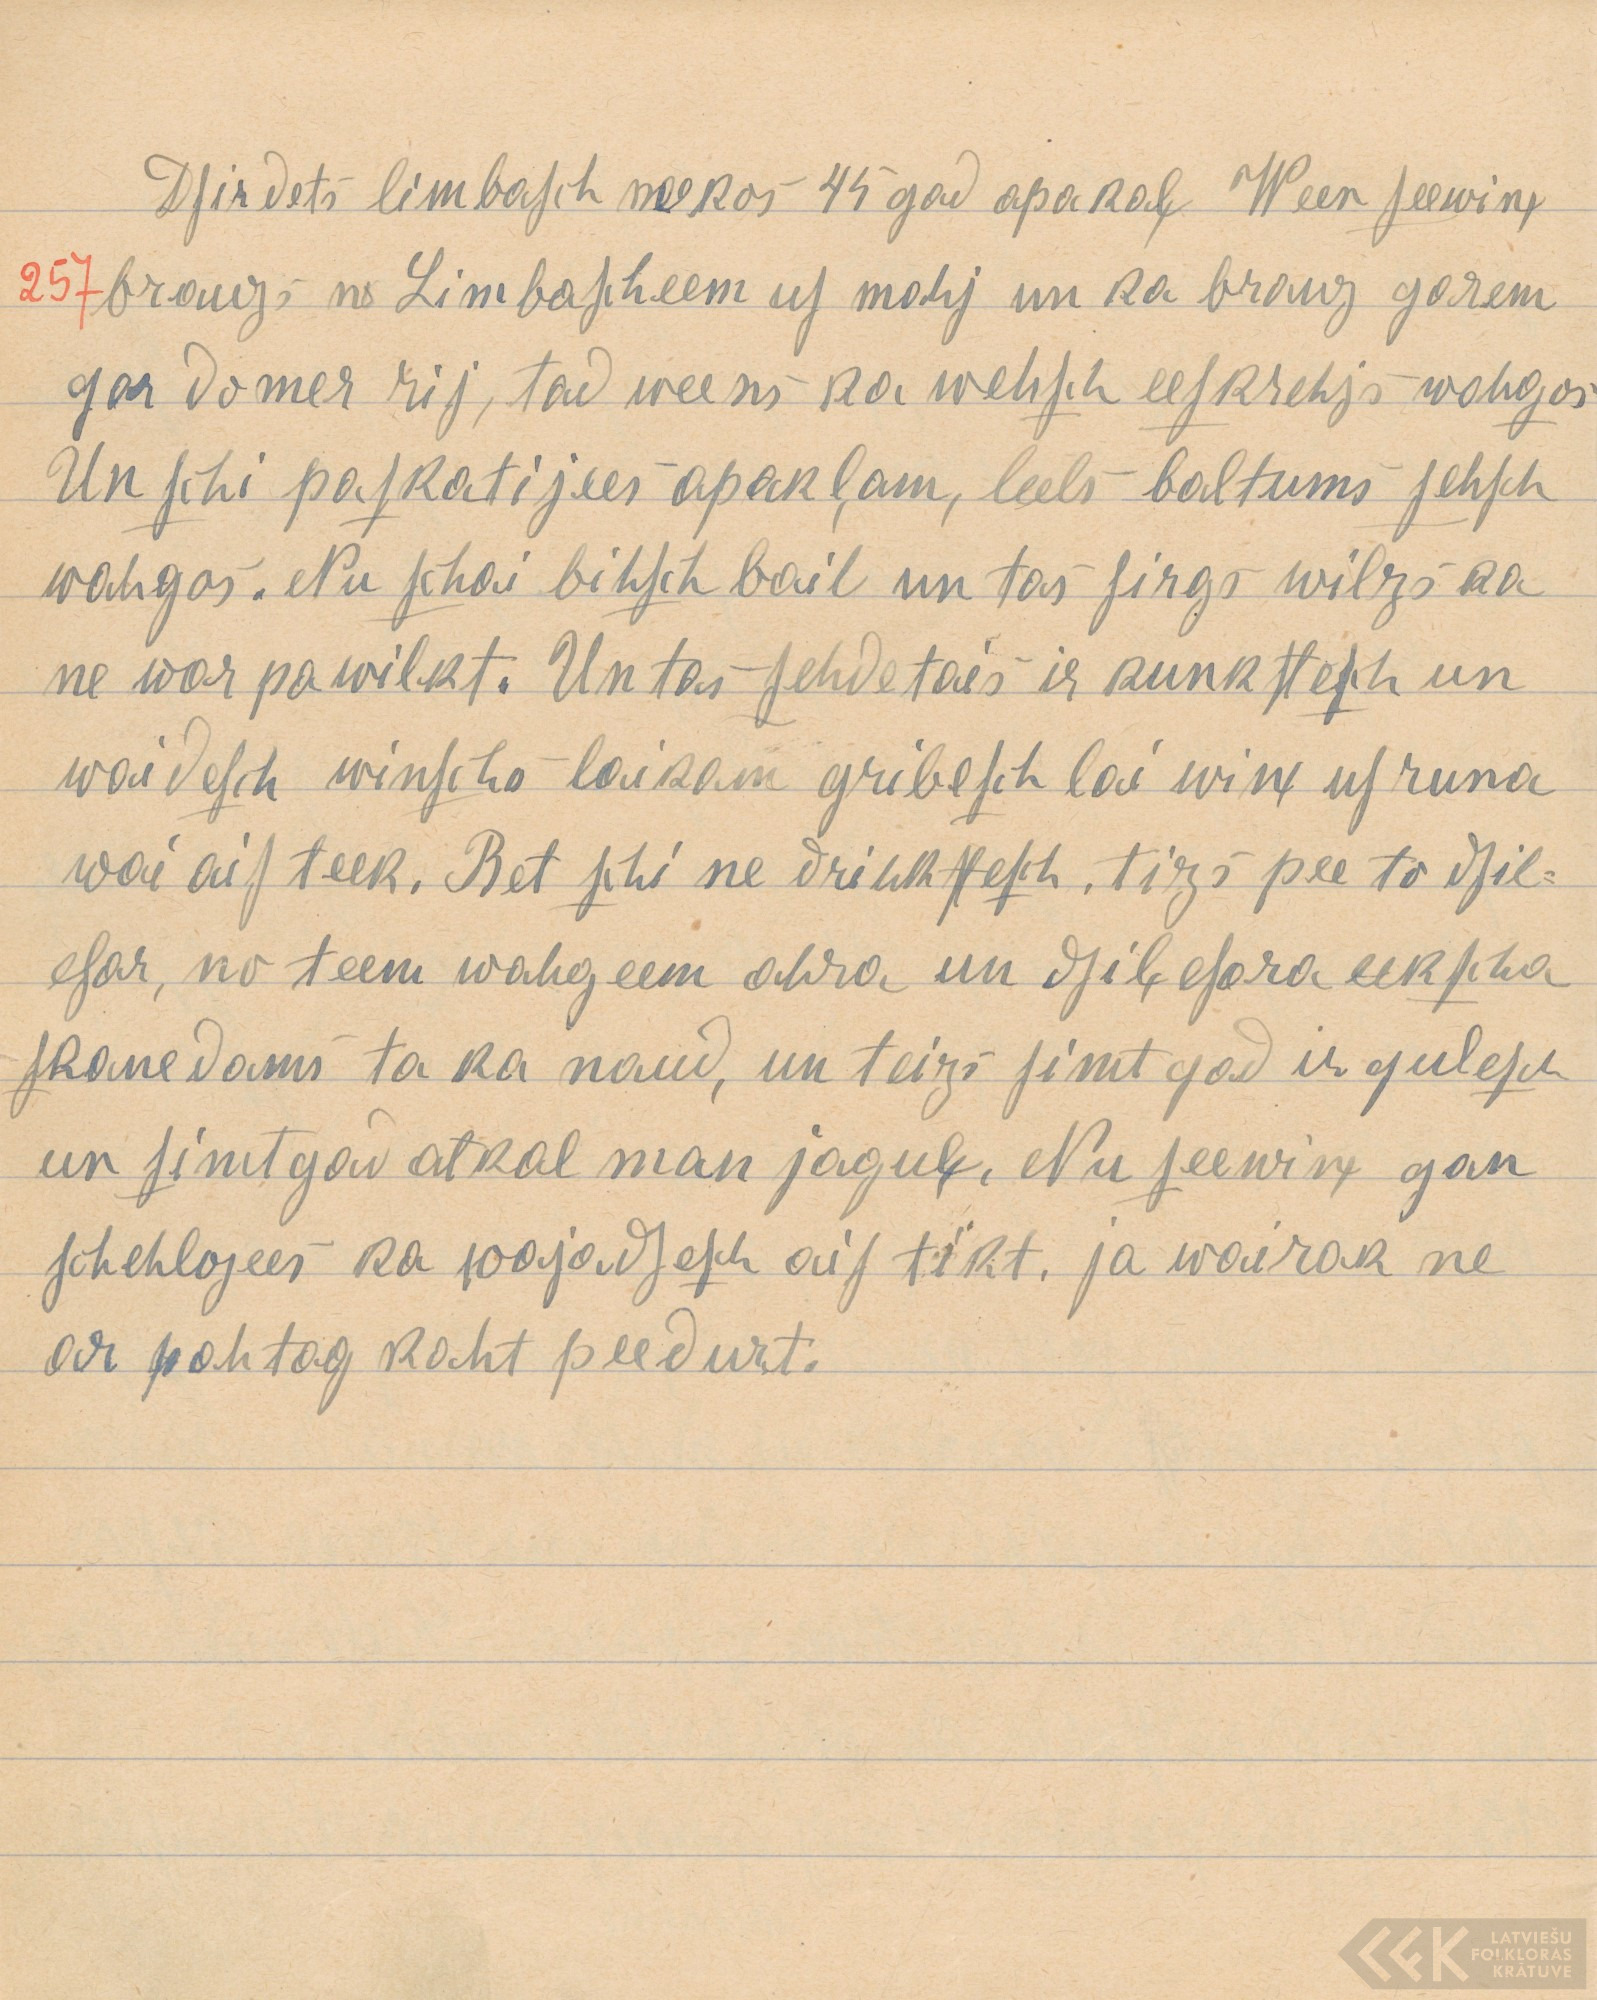 Dſirdets limbaſch mœkos 45 gad apakaļ Ween ſeewiņ
257 brauzs no Limbaſcheem uſ mahj un ka brauz garem
gar domer rij, tad weens ka wehſch eeſkrehjs wahgos
Un ſchi paſkatijees apakļam, leels baltums ſehſch
wahgos. Nu ſchai bihſch bail un tas ſirgs wilzs ka
ne war pawilkt. Un tas ſehdetais ir kunkſteſch un
waideſch winſcho laikam gribeſch lai wiņ uſruna
wai aiſ teek. Bet ſchi ne drihkſteſch. tizs pee to dſil=
eſar, no teem wahgeem ahra un dſiļ eſara eekſcha
ſkanedams ta ka naud, un teizs ſimt gad ir guleſch
un ſimtgad atkal man jaguļ. Nu ſeewiņ gan
ſchehlojees ka wajadſeſch aiſ tikt. ja wairak ne
ar pahtag kaht peedurt.
LATVIEŠU
FOLKLORAS
KRĀTUVE